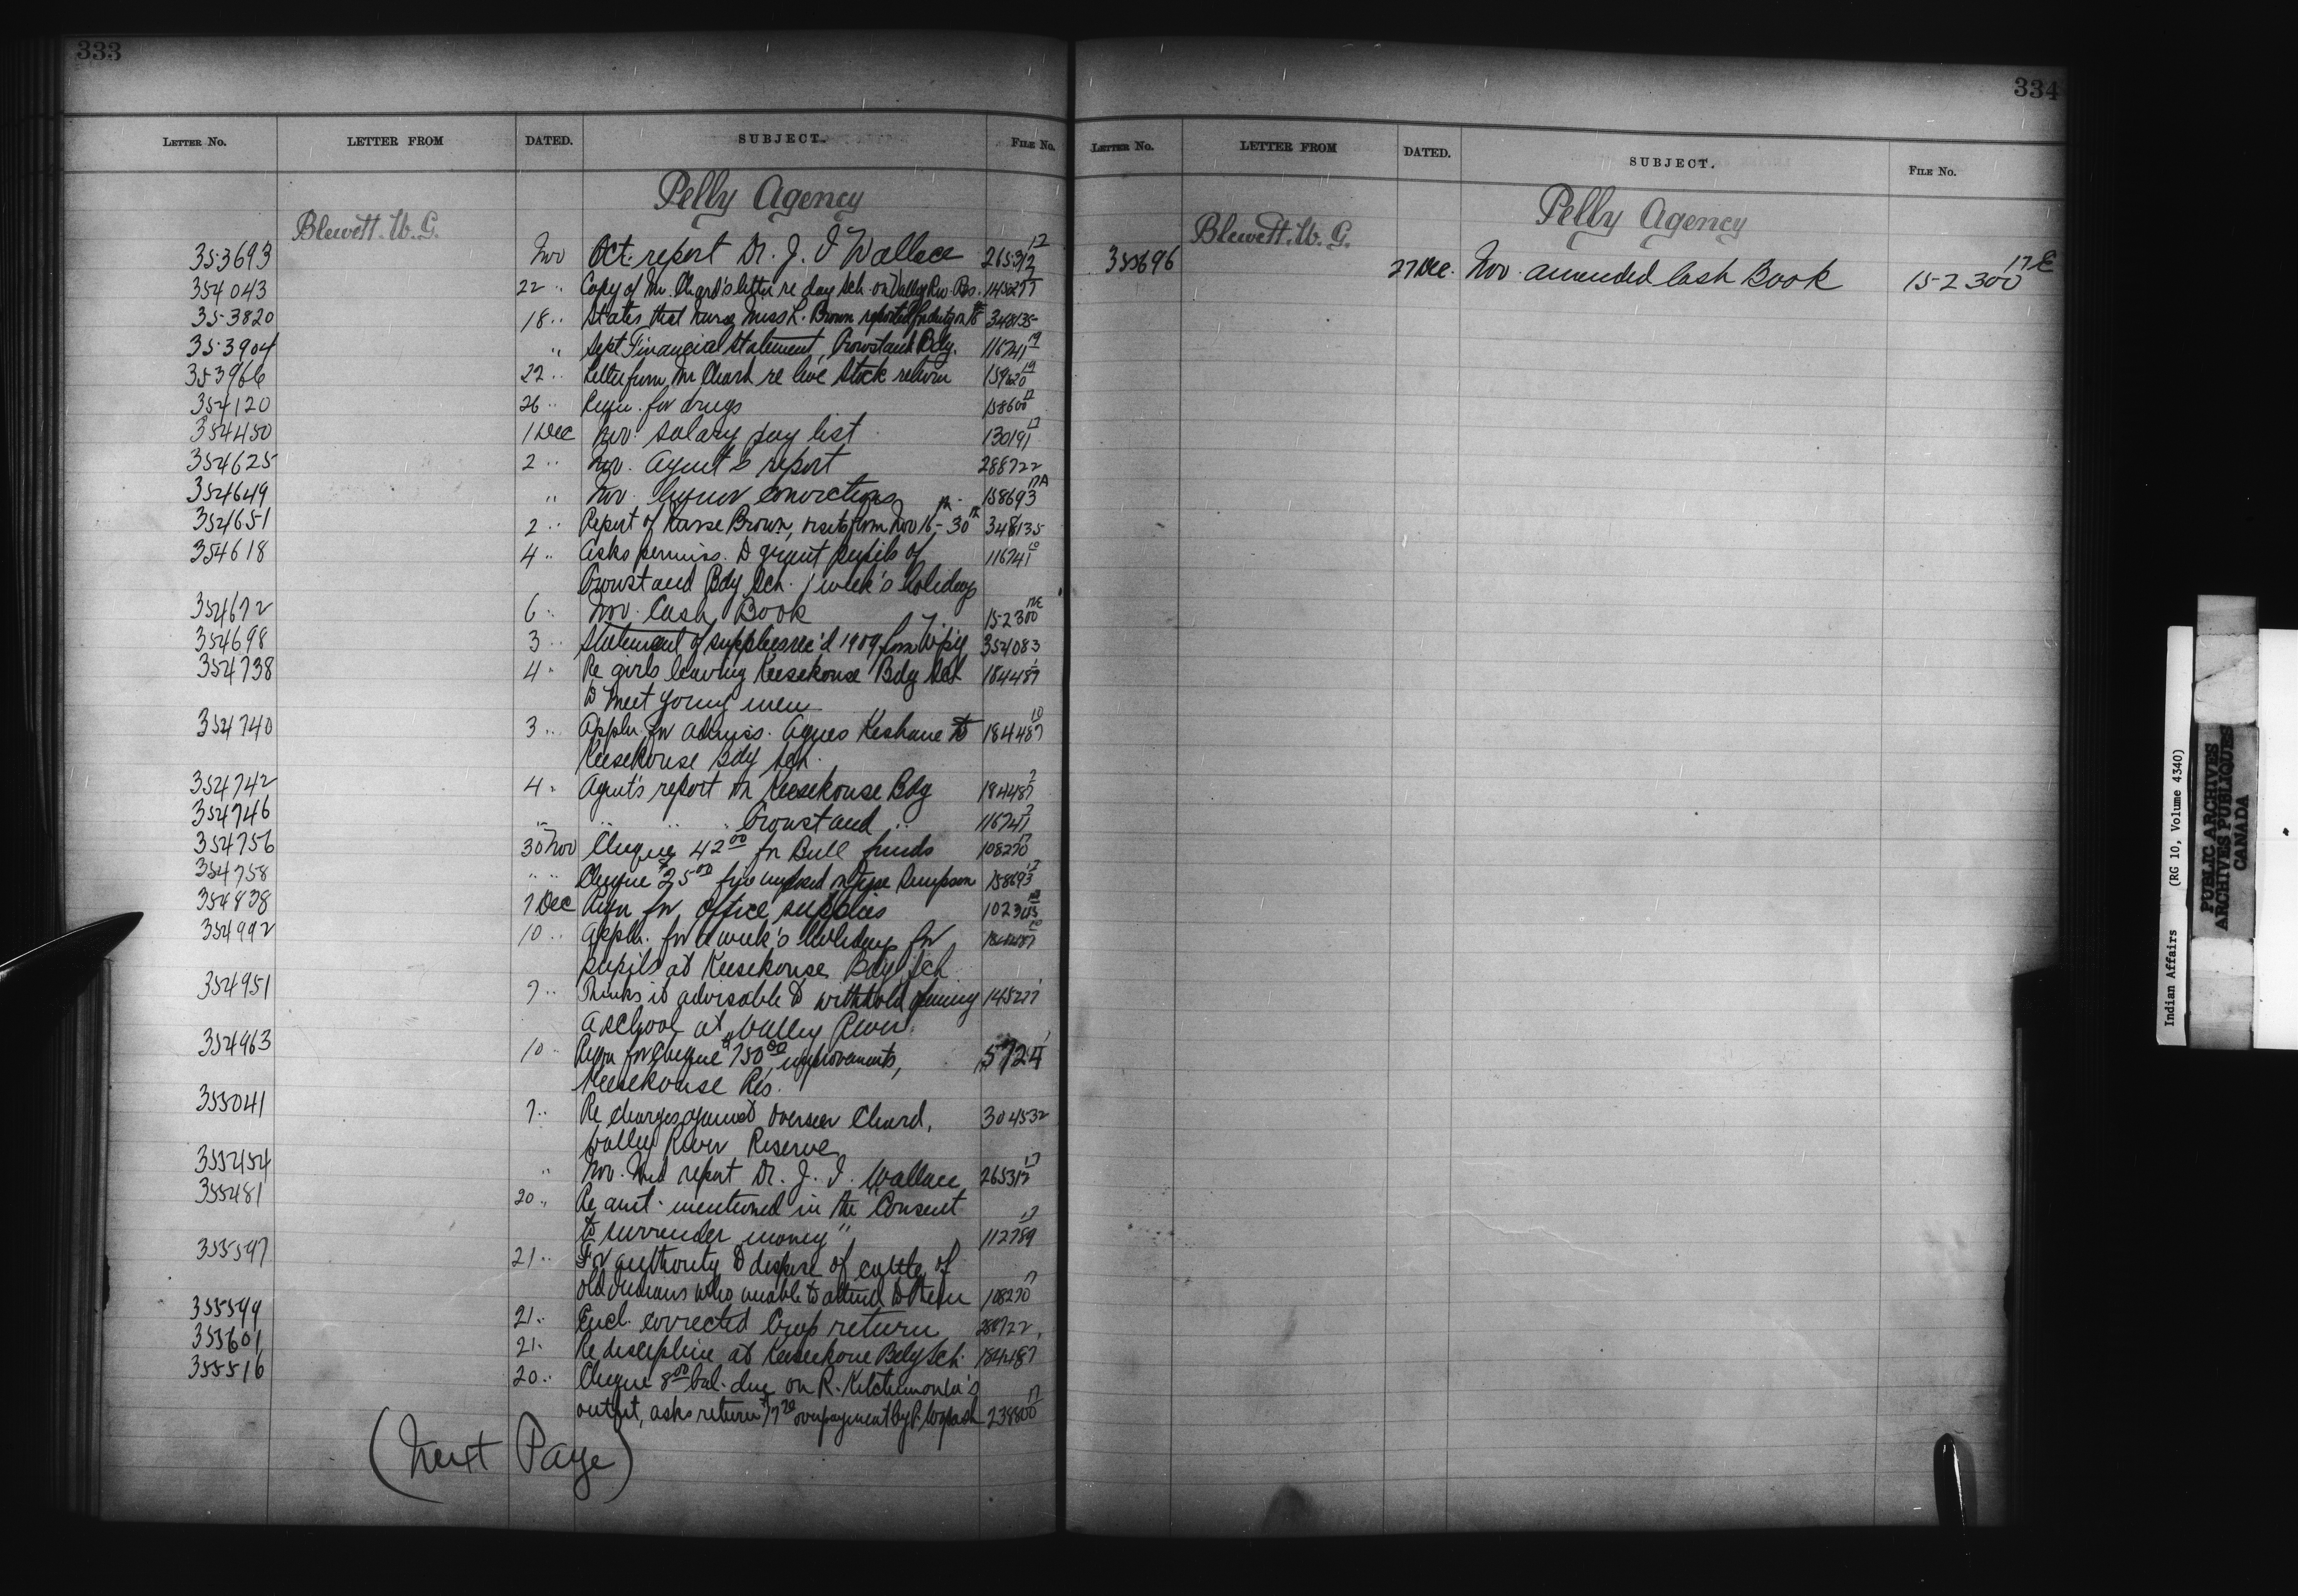 333
Letter No. LETTER FROM DATED. SUBJECT. File No.
Pelly Agency
Blewett. W. G.
353693 Nov Oct. report Dr. J. I Wallace 265312 17
354043 22 " Copy of Mr. Chard's letter re day Sch. on Valley Riv. Res. 145277
353820 18 " States that nurse, Miss L. Brown reported for duty on 16th 348135
353904 " Sept Financial Statement, Crowstand Bdg. 116741 19
353966 22 " Letter from Mr Chard re live Stock return 159620 19
354120 26 " Requn. for drugs 158600 17
354450 1 Dec Nov. Salary pay list 130191 17
354625 2 " Nov. Agent's report 288722
354649 " Nov. liquor convictions 158693 17A
354651 2 " Report of Nurse Brown, visits from Nov 16th - 30th 348135
354618 4 " Asks permiss. to grant pupils of 116741 10
Crowstand Bdg Sch. 1 week's holidays
354672 6 " Nov. Cash Book 152300 17E
354698 3 " Statement of supplies rec'd 1909 from W'p'g 354083
354738 4 " Re girls leaving Keesekouse Bdg Sch 184487 1
to meet young men
354740 3 " Appln. for admiss. Agnes Keshane to 184487 10
Keesekouse Bdg Sch.
354742 4 " Agent's report on Keesekouse Bdg 184487 2
354746 " " " " Crowstand " 116741 2
354756 30 Nov Cheque 42 00 for Bull funds 108270 17
354758 " " Cheque $25 00 fine imposed on Simpson 158693 17
354838 7 Dec Requn for Office supplies 102345
354992 10 " Appln. for a week's holidays for 184487 10
pupils at Keesekouse Bdg Sch
354951 7 " Thinks it advisable to withhold opening 145277 1
a school at Valley River.
354963 10 " Requn for cheque $750 00 improvements, 5724 1
Keesekouse Res.
355041 7 " Re charges against Overseer Chard, 304532
Valley River Reserve
355454 " Nov. Med report Dr. J. I. Wallace 265312 17
355481 20 " Re amt. mentioned in the "Consent
to surrender money" 112789 17
355597 21 " For authority to dispose of cattle of
old Indians who unable to attend to them 108270 17
355599 21 " Encl. corrected Crop return 288722
355601 21 " Re discipline at Keesekouse Bdg Sch. 184487 1
355516 20 " Cheque 8 00 bal. due on R. Kitchemonia's
outfit, asks return $17 20 overpayment by P. 238800 17
(Next Page)
334
Letter No. LETTER FROM DATED. SUBJECT. File No.
Pelly Agency
Blewett. W. G.
355696 27 Dec. Nov. amended Cash Book 152300 17E
Indian Affairs (RG 10, Volume 4340)
PUBLIC ARCHIVES
ARCHIVES PUBLIQUES
CANADA